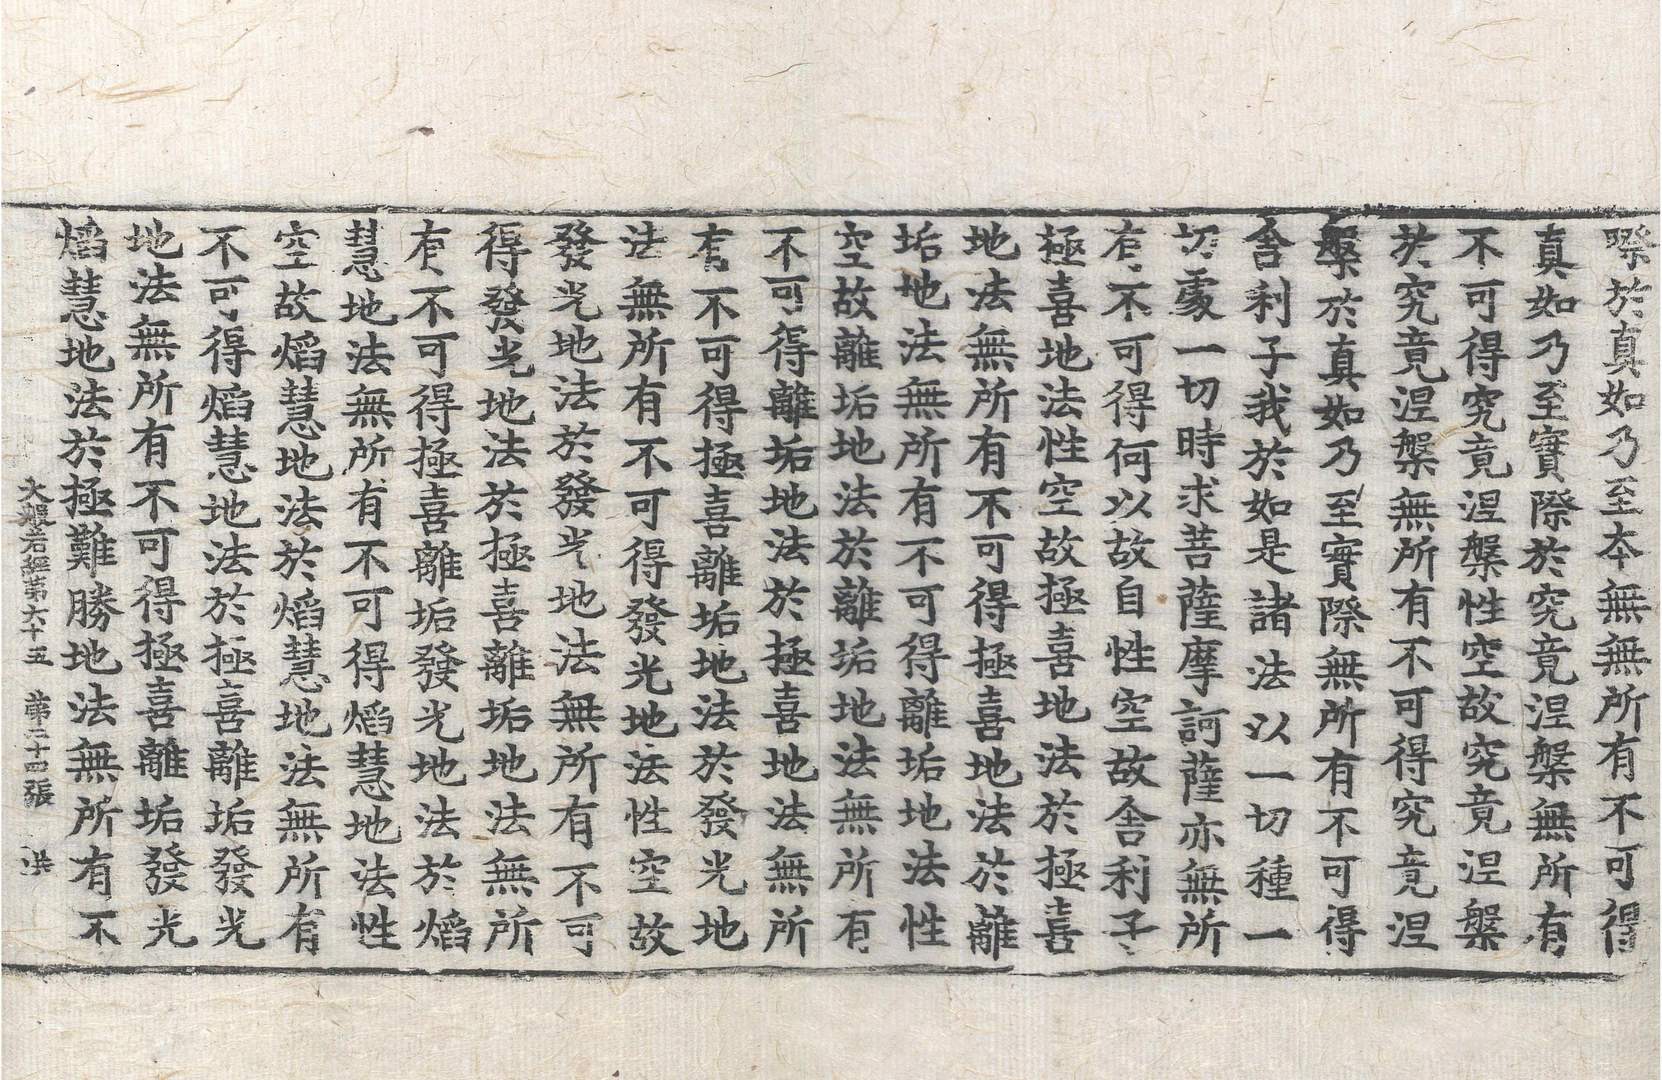 際於真如乃至本無無所有不可得
真如乃至實際於究竟涅槃無所有
不可得究竟涅槃性空故究竟涅槃
於究竟涅槃無所有不可得究竟涅
槃於真如乃至實際無所有不可得
舍利子我於如是諸法以一切種一
切處一切時求菩薩摩訶薩亦無所
有不可得何以故自性空故舍利子
極喜地法性空故極喜地法於極喜
地法無所有不可得極喜地法於離
垢地法無所有不可得離垢地法性
空故離垢地法於離垢地法無所有
不可得離垢地法於極喜地法無所
有不可得極喜離垢地法於發光地
法無所有不可得發光地法性空故
發光地法於發光地法無所有不可
得發光地法於極喜離垢地法無所
有不可得極喜離垢發光地法於焰
慧地法無所有不可得焰慧地法性
空故焰慧地法於焰慧地法無所有
不可得焰慧地法於極喜離垢發光
地法無所有不可得極喜離垢發光
焰慧地法於極難勝地法無所有不
大般若經第六十五 第二十四張 洪